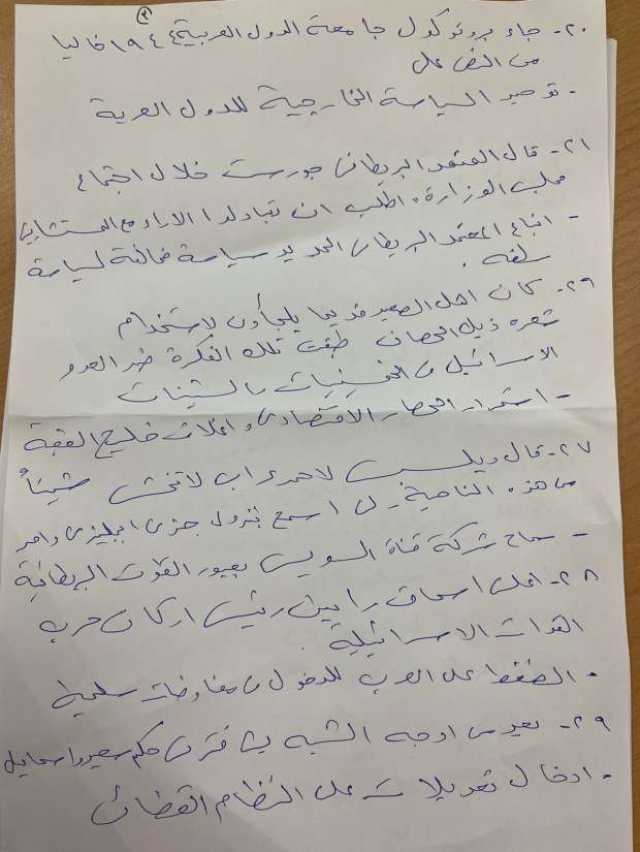 ٢
٢٠- جاء بروتوكول جامعة الدول العربية ١٩٤٤ خاليا
من النص على
- توحيد السياسة الخارجية للدول العربية
٢١- قال المعتمد البريطاني جورست خلال اجتماع
مجلس الوزارة، اطلب ان تبادلوا الاراء مع المستشارين
- اتباع المعتمد البريطاني الجديد سياسة مخالفة لسياسة
سلفه.
٢٩- كان اهل الصعيد قديما يلجأون لاستخدام
شعره ذيل الحصان طبقت تلك الفكرة ضد العدو
الاسرائيلي في الخمسينيات والستينات
- استمرار الحصار الاقتصادي واغلاق خليج العقبة
٢٧- قال ديلسبس لاحمد عرابي لا تخش شيئاً
من هذه الناحية لن اسمح بنزول جندي انجليزي واحد
- سماح شركة قناة السويس بعبور القوات البريطانية
٢٨- اعلن اسحاق رابين رئيس اركان حرب
القوات الاسرائيلية.
- الضغط على العرب للدخول في مفاوضات سلمية
٢٩- يعد من اوجه الشبه بين فترتي حكم سعيد واسماعيل
- ادخال تعديلات على النظام القضائي